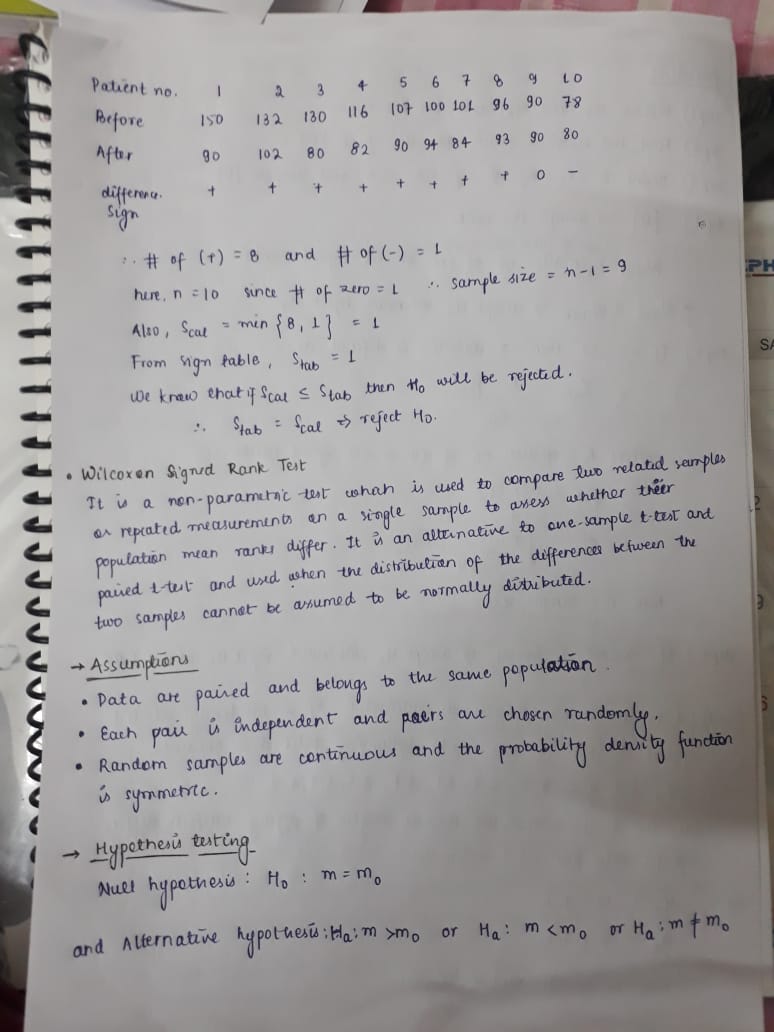 Patient no. 1 2 3 4 5 6 7 8 9 10
Before 150 132 130 116 107 100 101 96 90 78
After 90 102 80 82 90 94 84 93 90 80
difference. + + + + + + + + 0 -
sign
∴ # of (+) = 8 and # of (-) = 1
here, n = 10 since # of zero = 1 ∴ sample size = n-1 = 9
Also, Scal = min {8, 1} = 1
From sign table, Stab = 1
We know that if Scal ≤ Stab then H₀ will be rejected.
∴ Stab = Scal ⇒ reject H₀.
• Wilcoxon Signed Rank Test
It is a non-parametric test which is used to compare two related samples
or repeated measurements on a single sample to assess whether their
population mean ranks differ. It is an alternative to one-sample t-test and
paired t-test and used when the distribution of the differences between the
two samples cannot be assumed to be normally distributed.
→ Assumptions
• Data are paired and belongs to the same population.
• Each pair is independent and pairs are chosen randomly.
• Random samples are continuous and the probability density function
is symmetric.
→ Hypothesis testing
Null hypothesis : H₀ : m = m₀
and Alternative hypothesis : Ha : m > m₀ or Ha : m < m₀ or Ha : m ≠ m₀
PH
SA